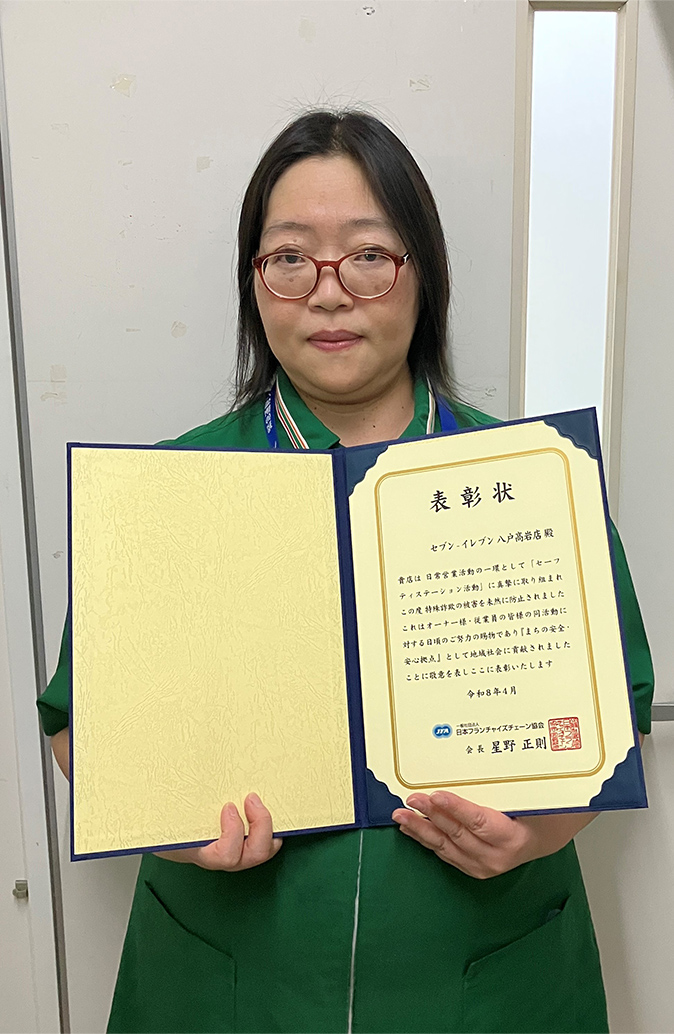 表彰状
セブン-イレブン 八戸高岩店 殿
貴店は 日常営業活動の一環として「セーフ
ティステーション活動」に真摯に取り組まれ
この度 特殊詐欺の被害を未然に防止されました
これはオーナー様・従業員の皆様の同活動に
対する日頃のご努力の賜物であり『まちの安全・
安心拠点』として地域社会に貢献されました
ことに敬意を表しここに表彰いたします
令和8年4月
JFA 一般社団法人
日本フランチャイズチェーン協会
会長 星野 正則